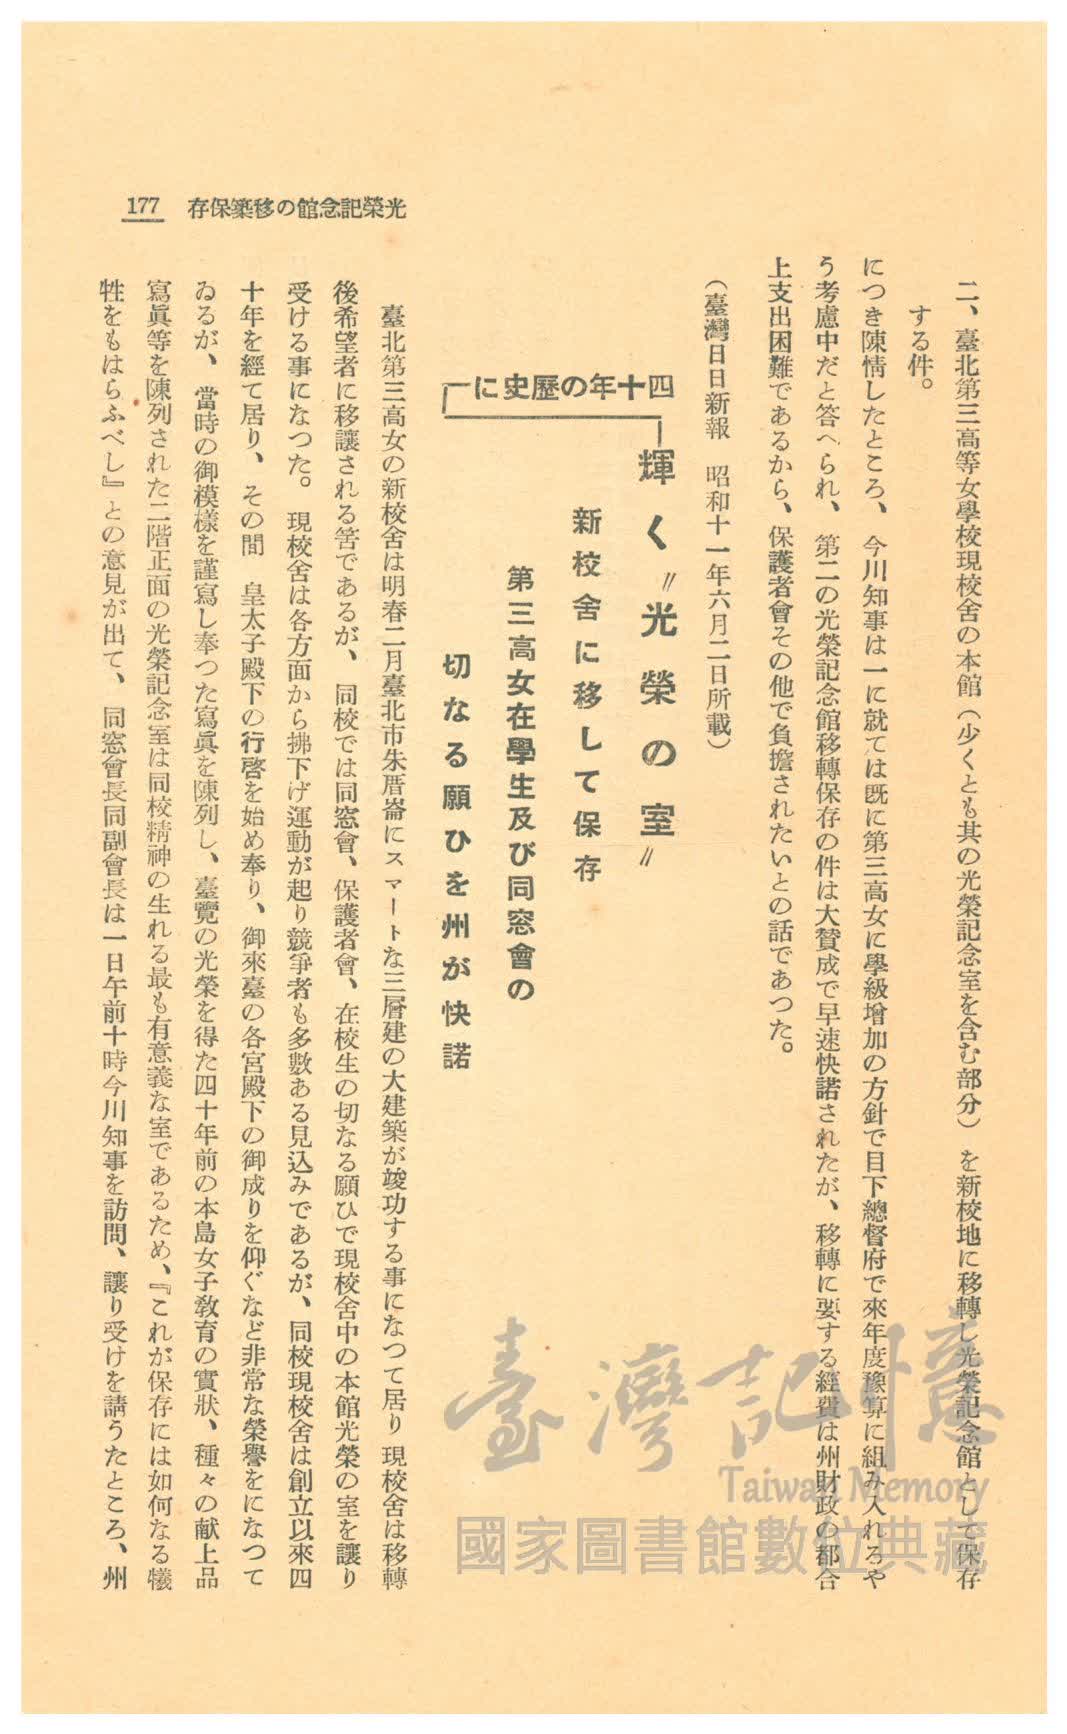 177 存保築移の館念記榮光
二、臺北第三高等女學校現校舍の本館（少くとも其の光榮記念室を含む部分）を新校地に移轉し光榮記念館として保存
する件。
につき陳情したところ、今川知事は一に就ては既に第三高女に學級增加の方針で目下總督府で來年度豫算に組み入れろや
う考慮中だと答へられ、第二の光榮記念館移轉保存の件は大贊成で早速快諾されたが、移轉に要する經費は州財政の都合
上支出困難であるから、保護者會その他で負擔されたいとの話であつた。
（臺灣日日新報　昭和十一年六月二日所載）
に史歷の年十四
輝く〃光榮の室〃
新校舍に移して保存
第三高女在學生及び同窓會の
切なる願ひを州が快諾
臺北第三高女の新校舍は明春二月臺北市朱厝崙にスマートな三層建の大建築が竣功する事になつて居り現校舍は移轉
後希望者に移讓される筈であるが、同校では同窓會、保護者會、在校生の切なる願ひで現校舍中の本館光榮の室を讓り
受ける事になつた。現校舍は各方面から拂下げ運動が起り競爭者も多數ある見込みであるが、同校現校舍は創立以來四
十年を經て居り、その間　皇太子殿下の行啓を始め奉り、御來臺の各宮殿下の御成りを仰ぐなど非常な榮譽をになつて
ゐるが、當時の御模樣を謹寫し奉つた寫眞を陳列し、臺覽の光榮を得た四十年前の本島女子敎育の實狀、種々の献上品
寫眞等を陳列された二階正面の光榮記念室は同校精神の生れる最も有意義な室であるため、『これが保存には如何なる犧
牲をもはらふべし』との意見が出て、同窓會長同副會長は一日午前十時今川知事を訪問、讓り受けを請うたところ、州
臺灣記憶
Taiwan Memory
國家圖書館數位典藏